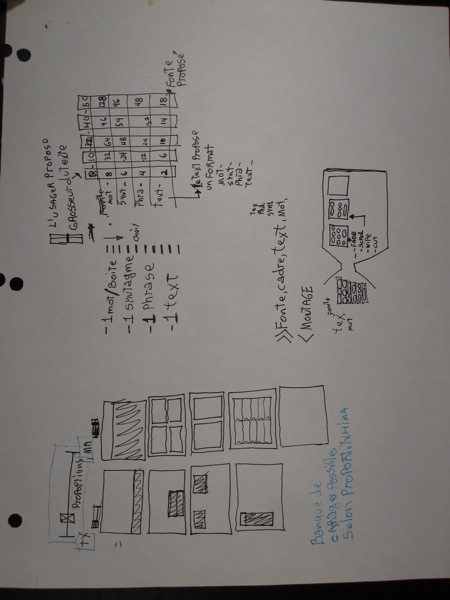 L'USAGER PROPOSO
GROSSEUR du texte
8 - 10 - 20 - 40 - 50
mot - 8 32 64 96 128
Synt - 6 24 48 64 96
Phra - 4 12 24 32 48
text - 2 6 10 14 18
Fonte
PROPOSE
PROPOSE
un FORMAT
mot -
synt -
Phra -
text -
- 1 mot/Boite
- 1 syntagme
- 1 Phrase
- 1 text
choix
>> Fonte, cadre, text, Mot,
< MONTAGE
fonte
tex
mot
- FADE
- scroll
- wipe
- cut
PROPORTIONS
tx
MA
Banque de
CADRAGES POSSIBLES
selon PROPORtiTX/iMA